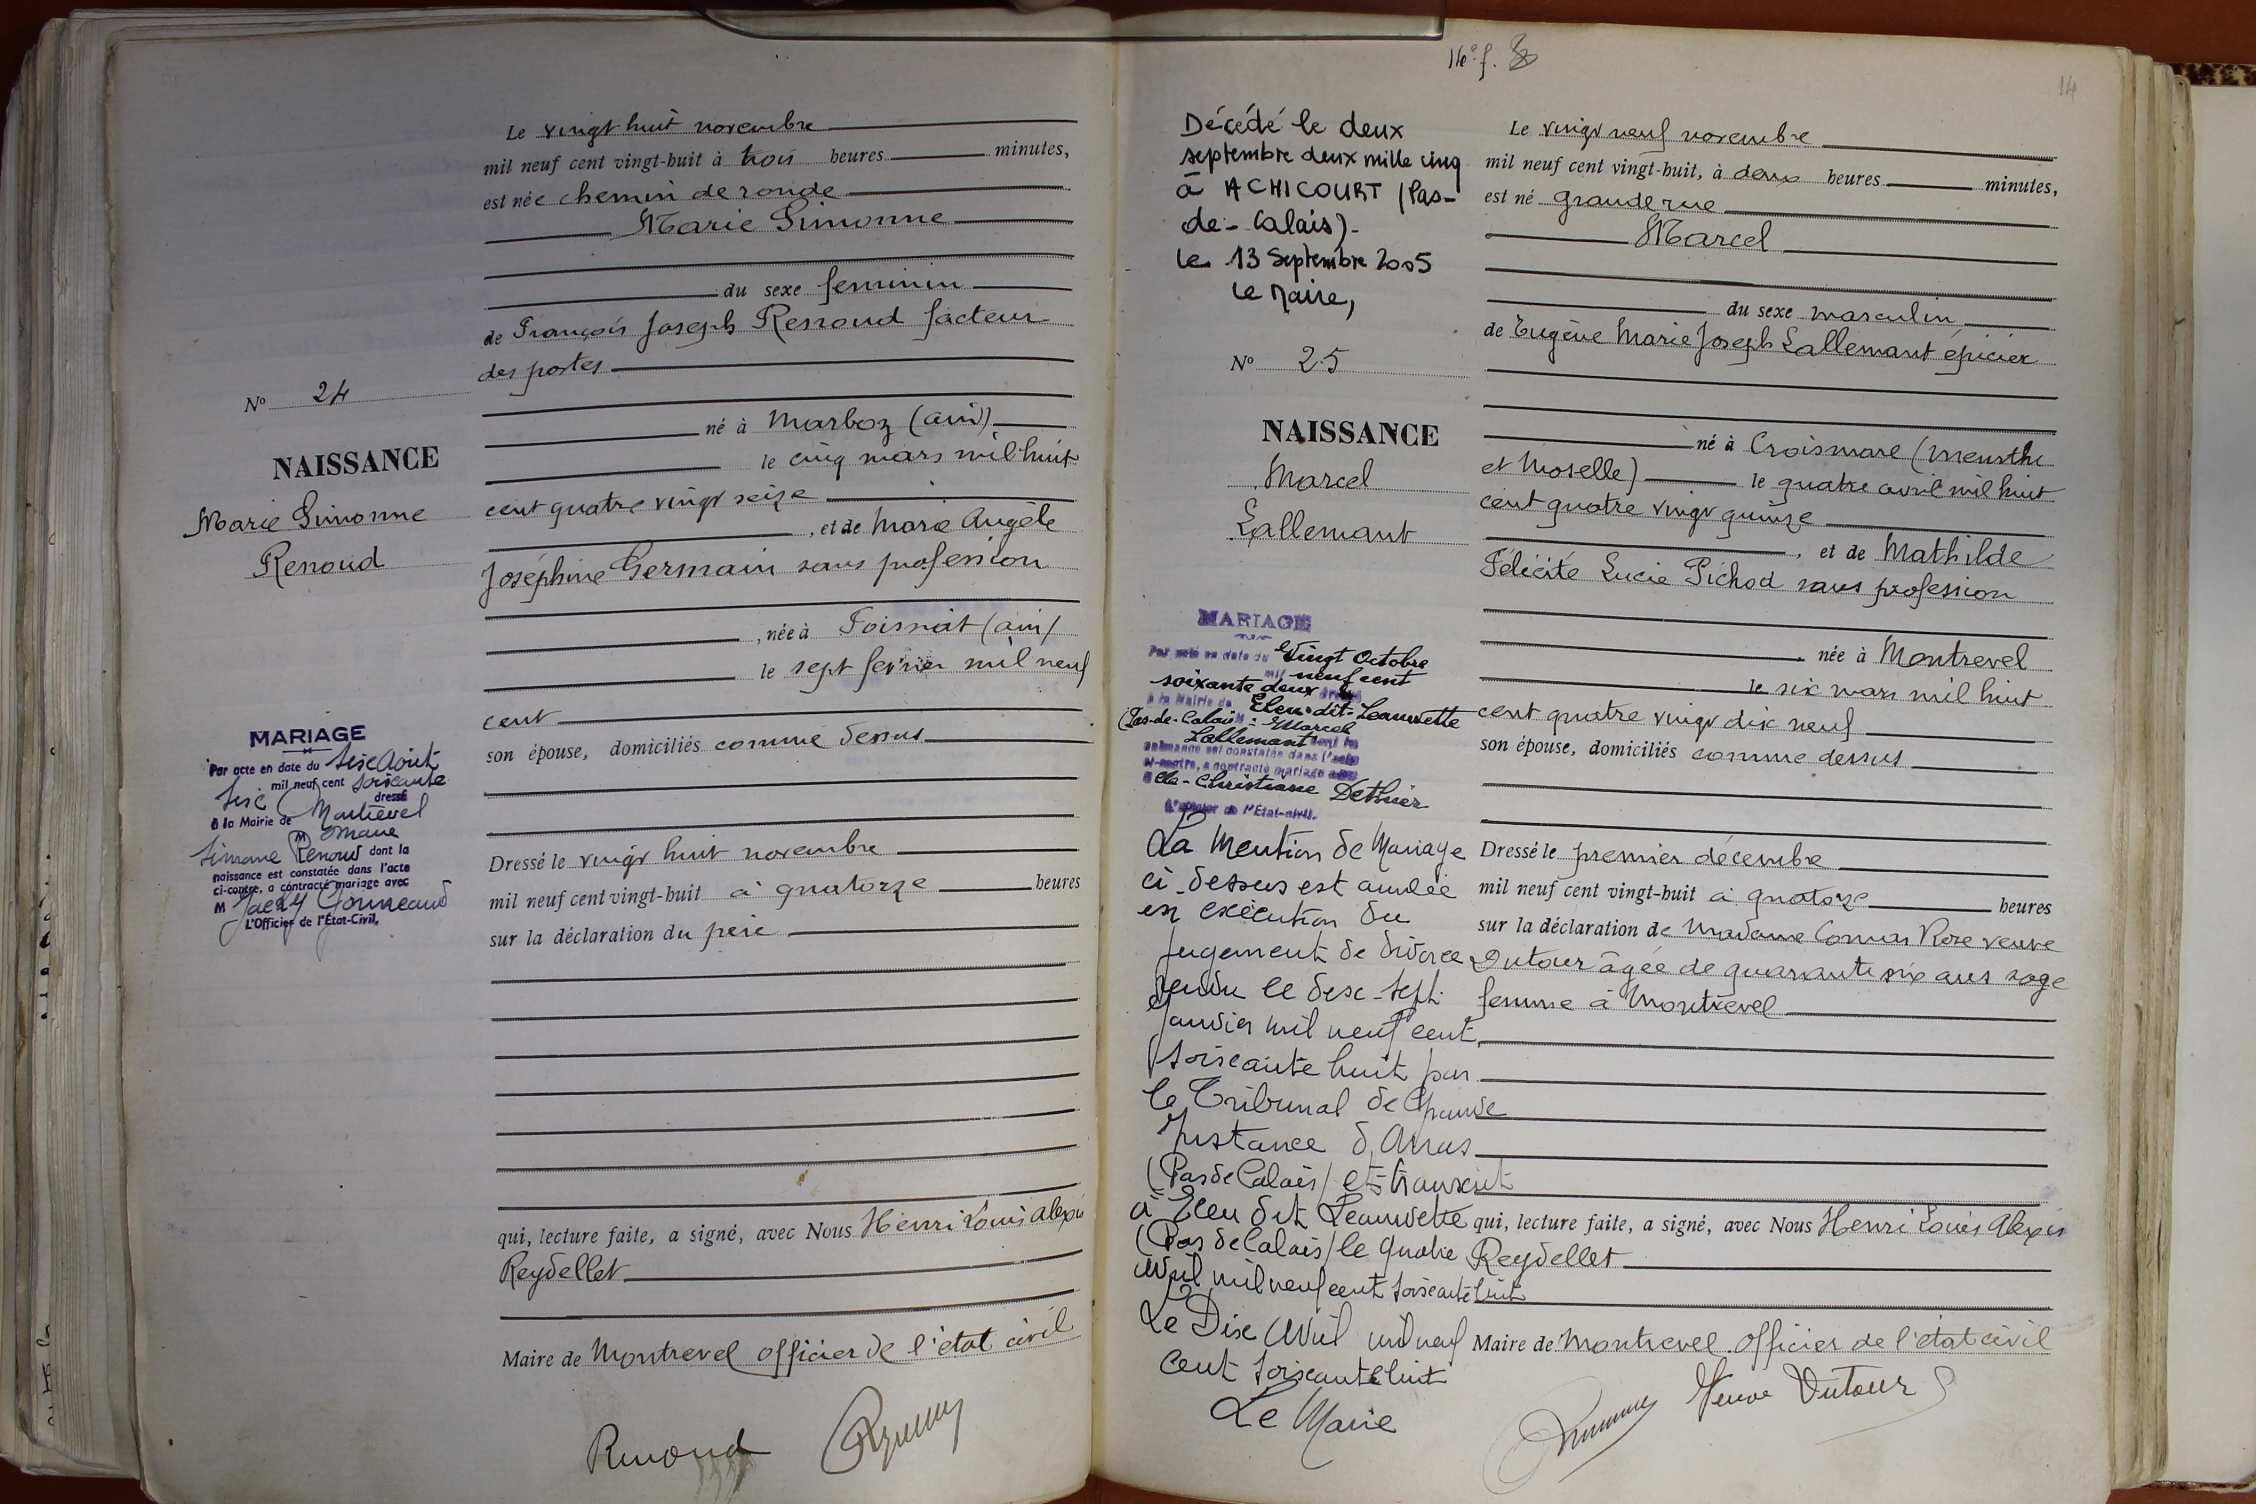 Le vingt huit novembre
mil neuf cent vingt-huit à trois heures minutes,
est née chemin de ronde
Marie Simonne
du sexe feminin
de François Joseph Renoud facteur
des postes
né à Marboz (ain)
le cinq mars mil huit
cent quatre vingt seize
, et de Marie Angèle
Joséphine Germain sans profession
, née à Foissiat (ain)
le sept fevrier mil neuf
cent
son épouse, domiciliés comme dessus
Dressé le vingt huit novembre
mil neuf cent vingt-huit à quatorze heures
sur la déclaration du père
qui, lecture faite, a signé, avec Nous Henri Louis Alexis
Reydellet
Maire de Montrevel officier de l'état civil
Renoud
No 24
NAISSANCE
Marie Simonne
Renoud
MARIAGE
Par acte en date du six Août
mil neuf cent soixante
six dressé
à la Mairie de Montrevel
M Marie
Simone Renoud dont la
naissance est constatée dans l'acte
ci-contre, a contracté mariage avec
M
L'Officier de l'État-Civil,
14
Décédé le deux
septembre deux mille cinq
à ACHICOURT (Pas-
de-Calais)-
le 13 Septembre 2005
Le Maire,
No 25
NAISSANCE
Marcel
Lallemant
MARIAGE
Par acte en date du Vingt Octobre
mil neuf cent
soixante deux
à la Mairie de Eleu-dit-Leauwette
(Pas-de-Calais) M. Marcel
Lallemant dont la
naissance est constatée dans l'acte
ci-contre, a contracté mariage avec
Christiane Dethier
L'Officier de l'État-civil.
La Mention de Mariage
ci-dessus est annulée
en exécution du
jugement de divorce
rendu le dix-sept
janvier mil neuf cent
soixante huit par
le Tribunal de Grande
Instance d'Arras
(Pas de Calais) et transcrit
à Eleu dit Leauwette
(Pas de Calais) le quatre
Avril mil neuf cent soixante huit
Le Dix Avril mil neuf
cent soixante huit
Le Maire
Le vingt neuf novembre
mil neuf cent vingt-huit, à deux heures minutes,
est né grande rue
Marcel
du sexe masculin
de Eugène Marie Joseph Lallemant épicier
né à Croismare (Meurthe
et Moselle) le quatre avril mil huit
cent quatre vingt quinze
, et de Mathilde
Félicité Lucie Pichod sans profession
née à Montrevel
le six mars mil huit
cent quatre vingt dix neuf
son épouse, domiciliés comme dessus
Dressé le premier décembre
mil neuf cent vingt-huit à quatorze heures
sur la déclaration de Madame Comas Rose veuve
Dutour âgée de quarante six ans sage
femme à Montrevel
qui, lecture faite, a signé, avec Nous Henri Louis Alexis
Reydellet
Maire de Montrevel officier de l'état civil
Veuve Dutour